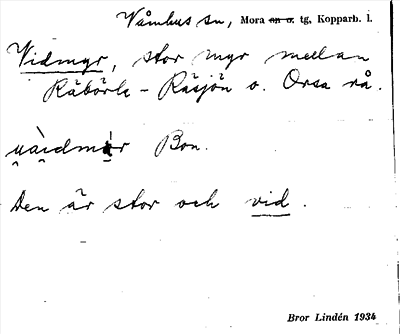 Våmhus sn, Mora sn o. tg, Kopparb. l.
Vidmyr, stor myr mellan
Råbörk - Råsjön o. Orsa rå.
Bon.
Den är stor och vid.
Bror Lindén 1934